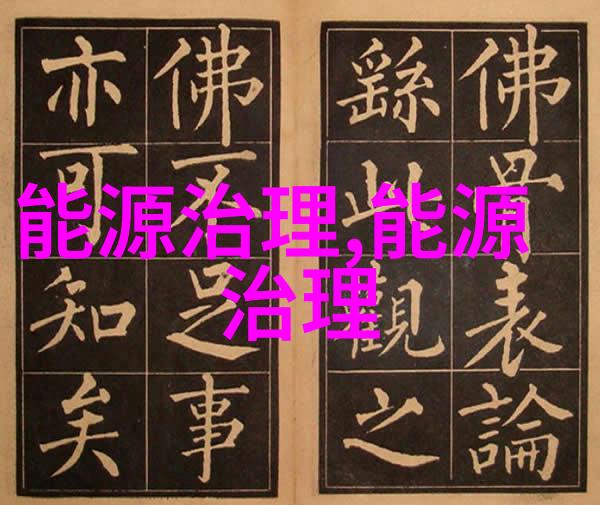 佛骨表論
繇此觀之
佛不足事
亦可知矣
能源治理,能源
治理